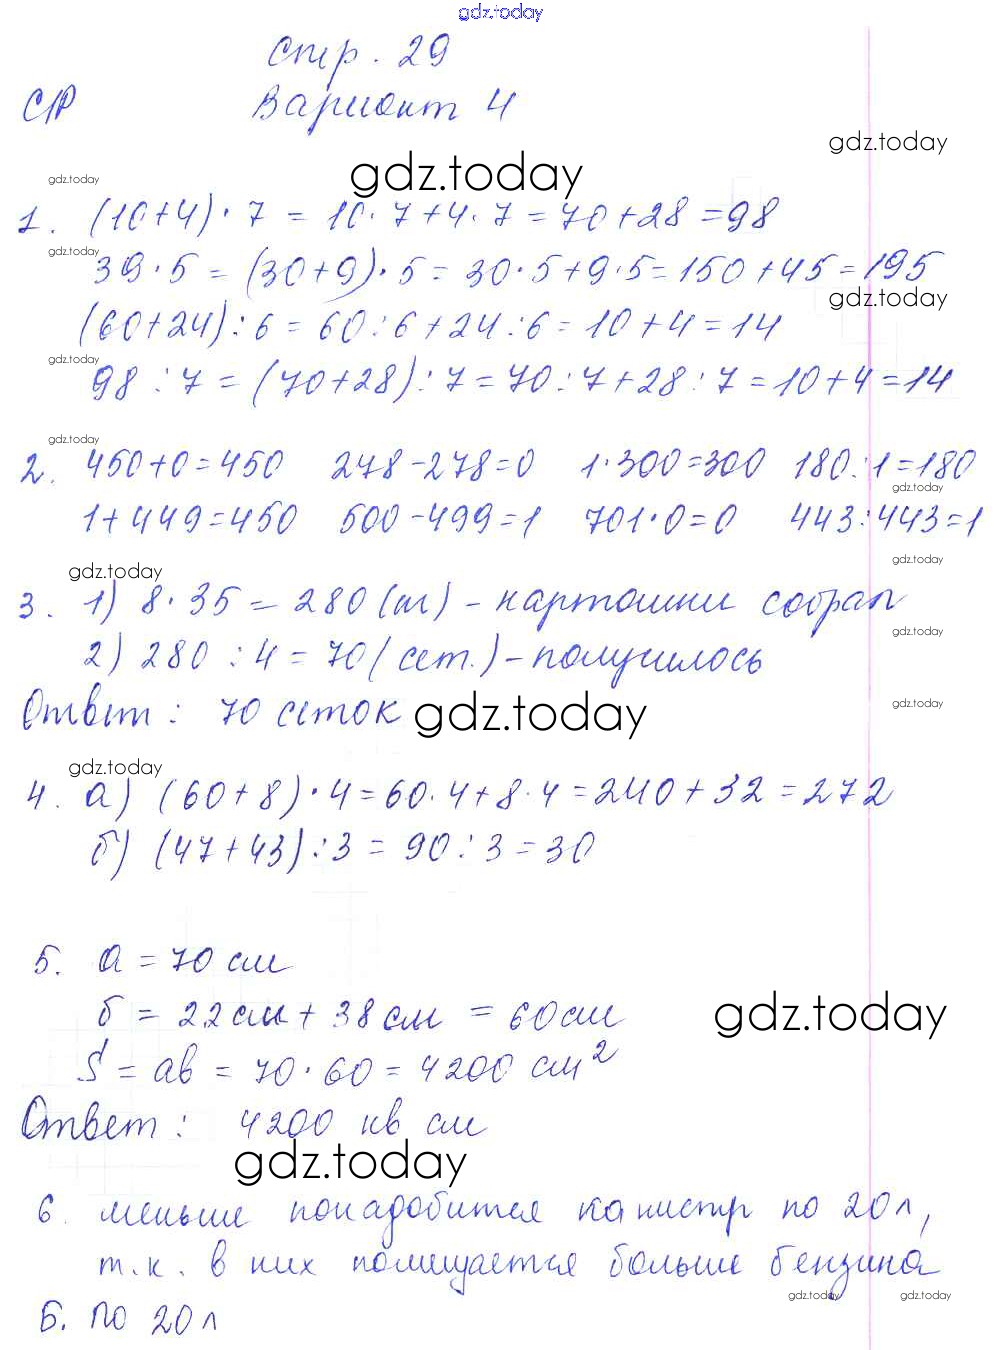 gdz.today
стр. 29
С/Р Вариант 4
gdz.today
gdz.today
gdz.today
1. (10+4)·7 = 10·7+4·7 = 70+28 = 98
gdz.today
39·5 = (30+9)·5 = 30·5+9·5 = 150+45 = 195
gdz.today
(60+24):6 = 60:6+24:6 = 10+4 = 14
gdz.today
98:7 = (70+28):7 = 70:7+28:7 = 10+4 = 14
gdz.today
2. 450+0=450 278-278=0 1·300=300 180:1=180
gdz.today
1+449=450 500-499=1 701·0=0 443:443=1
gdz.today
gdz.today
3. 1) 8·35 = 280 (м) - картошки собрал
gdz.today
2) 280:4 = 70 (сет.) - получилось
gdz.today
Ответ: 70 сеток
gdz.today
gdz.today
4. а) (60+8)·4 = 60·4+8·4 = 240+32 = 272
б) (47+43):3 = 90:3 = 30
5. а = 70 см
б = 22 см + 38 см = 60 см
gdz.today
S = ав = 70·60 = 4200 см²
Ответ: 4200 кв см
gdz.today
6. меньше понадобится канистр по 20 л,
т.к. в них помещается больше бензина
gdz.today
gdz.today
Б. по 20 л